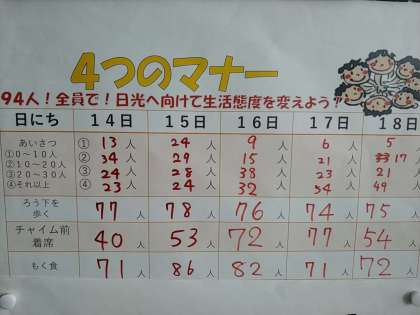 4つのマナー
94人！全員で！日光へ向けて生活態度を変えよう？
日にち 14日 15日 16日 17日 18日
あいさつ ① 13人 24人 9人 6人 5人
①0～10人 ② 34人 29人 15人 21人 17人
②10～20人 ③ 24人 28人 38人 23人 21人
③20～30人 ④ 23人 24人 32人 54人 49人
④それ以上
ろう下を 77人 78人 76人 74人 75人
歩く
チャイム前 40人 53人 72人 77人 54人
着席
もく食 71人 86人 82人 71人 72人